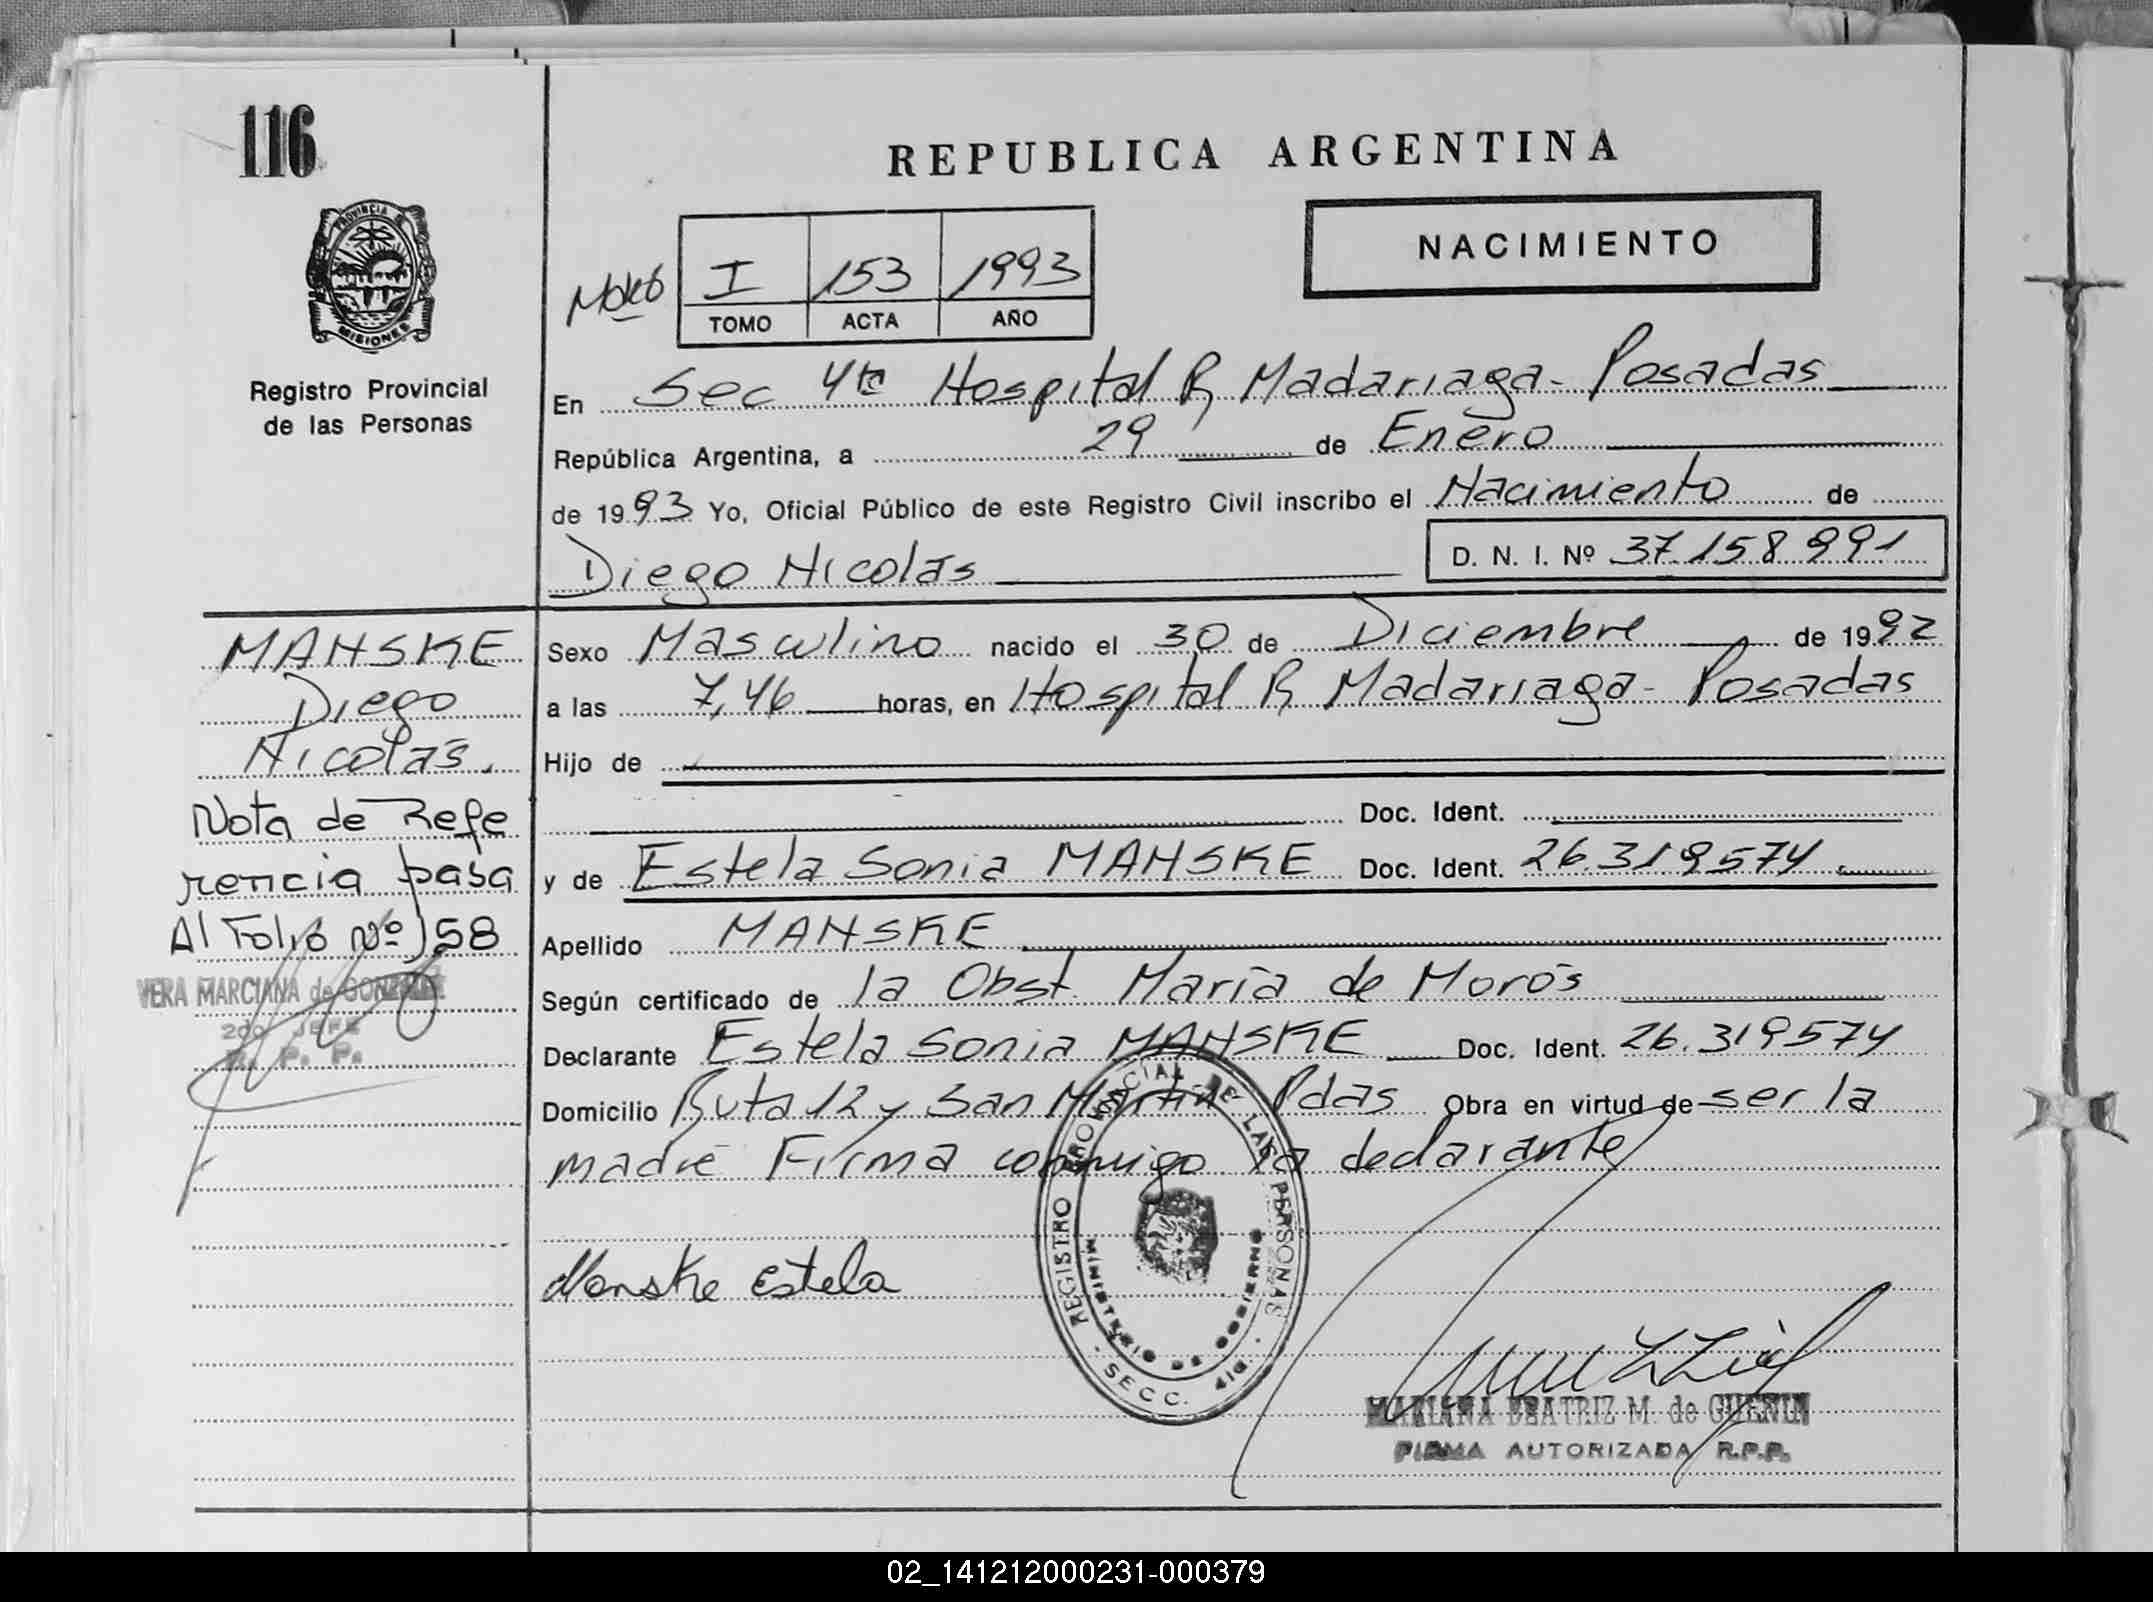 116
REPUBLICA ARGENTINA
NACIMIENTO
I 153 1993
TOMO ACTA AÑO
PROVINCIA DE
MISIONES
Registro Provincial
de las Personas
En Sec 4ta Hospital R. Madariaga - Posadas
República Argentina, a 29 de Enero
de 1993 Yo, Oficial Público de este Registro Civil inscribo el Nacimiento de
Diego Nicolás D. N. I. Nº 37.158.991
MANSKE
Diego
Nicolás.
Nota de Refe
rencia pasa
Al Folio Nº 158
VERA MARCIANA de GONZALEZ
2do JEFE
R. P. P.
Sexo Masculino nacido el 30 de Diciembre de 1992
a las 7,46 horas, en Hospital R. Madariaga - Posadas
Hijo de
Doc. Ident.
y de Estela Sonia MANSKE Doc. Ident. 26.319574
Apellido MANSKE
Según certificado de la Obst. María de Morós
Declarante Estela Sonia MANSKE Doc. Ident. 26.319574
Domicilio Ruta 12 y San Martín Pdas Obra en virtud de ser la
madre Firma conmigo la declarante
Manske Estela
REGISTRO PROVINCIAL DE LAS PERSONAS
MINISTERIO DE GOBIERNO
SECC. 4ta
BEATRIZ M. de GUENIN
FIRMA AUTORIZADA R.P.P.
02_141212000231-000379